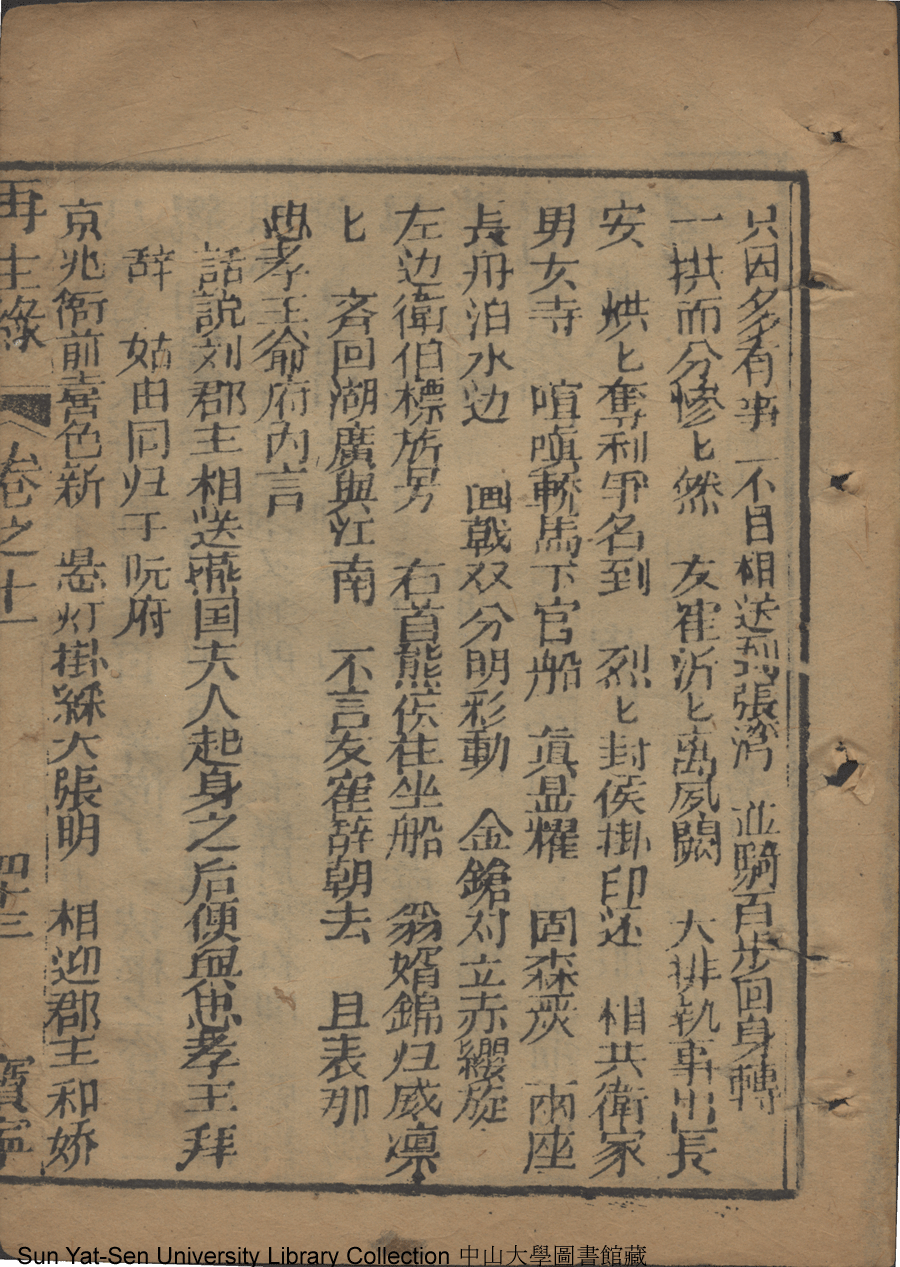 只因多有事 不自相送到張濟 並騎百步回身轉
一拱而分慘匕然 友崔沂匕离夙闕 大排執事出長
安 烘匕奪利爭名到 烈匕封侯掛印还 相共衛家
男女寺 喧嗔轎馬下官船 真显耀 固森炭 兩座
長舟泊水边 画戟双分明彩動 金鎗对立赤纓旋
左边衛伯標旂另 右首熊侯往坐船 翁婿錦归威凛
匕 吝回湖廣與江南 不言友崔辞朝去 且表那
忠孝王爺府內言
話說刘郡主相送燕国夫人起身之后便與忠孝王拜
辞 姑由同归于阮府
京兆衙前喜色新 懸灯掛綵大張明 相迎郡主和娇
再生緣 卷之十一 四十三 寶寧
Sun Yat-Sen University Library Collection 中山大學圖書館藏